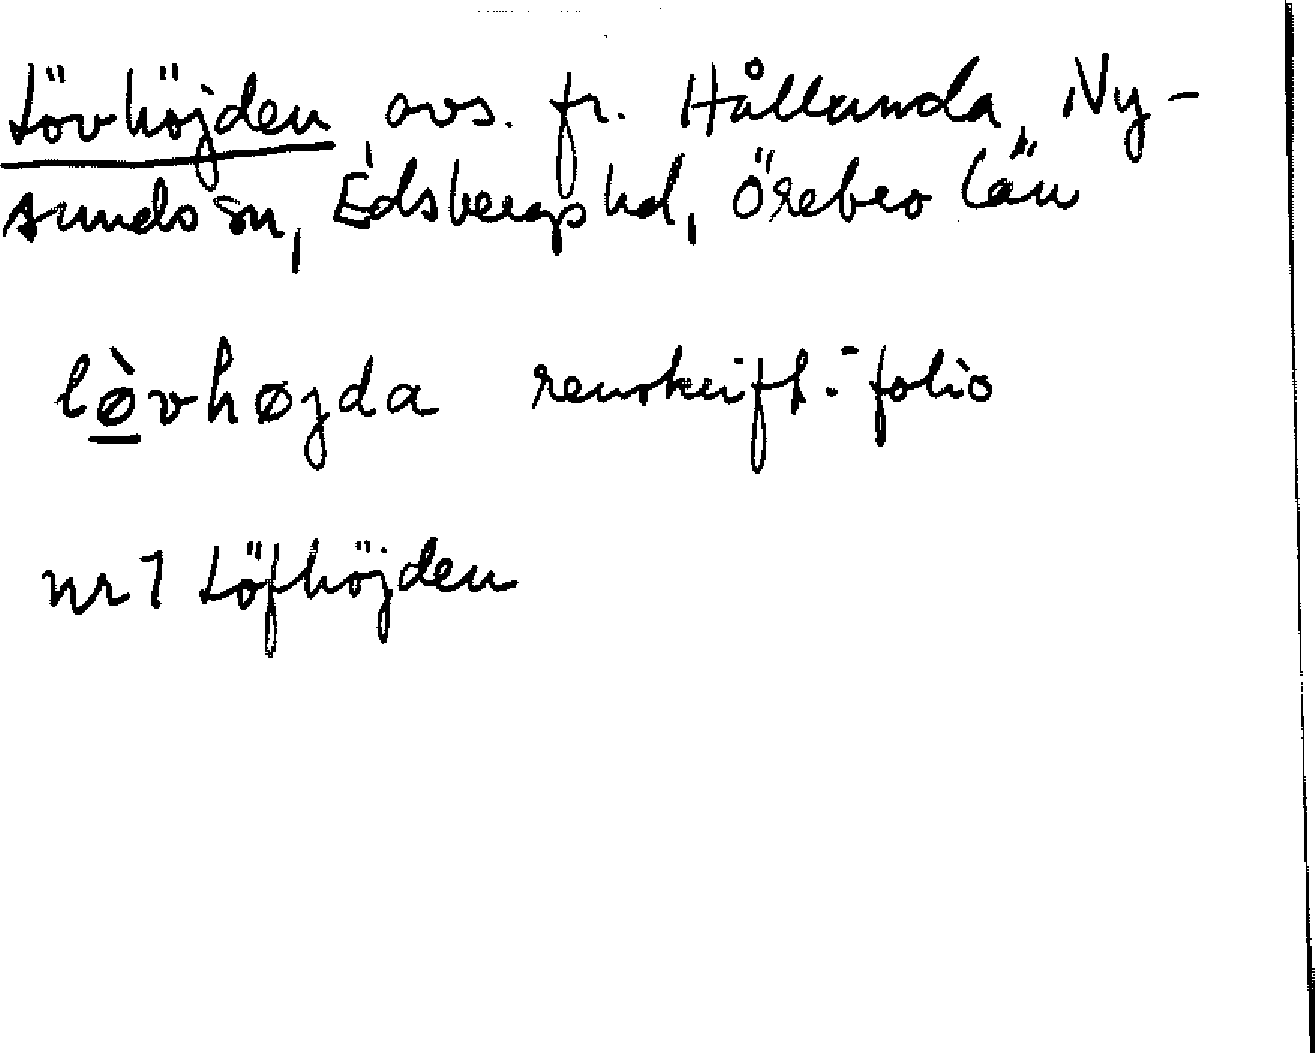 Lövhöjden, avs. fr. Hållunda, Ny-
sunds sn, Edsbergs hd, Örebro län
lø̱̀vhøjda renskrift.-folio
nr 1 Löfhöjden